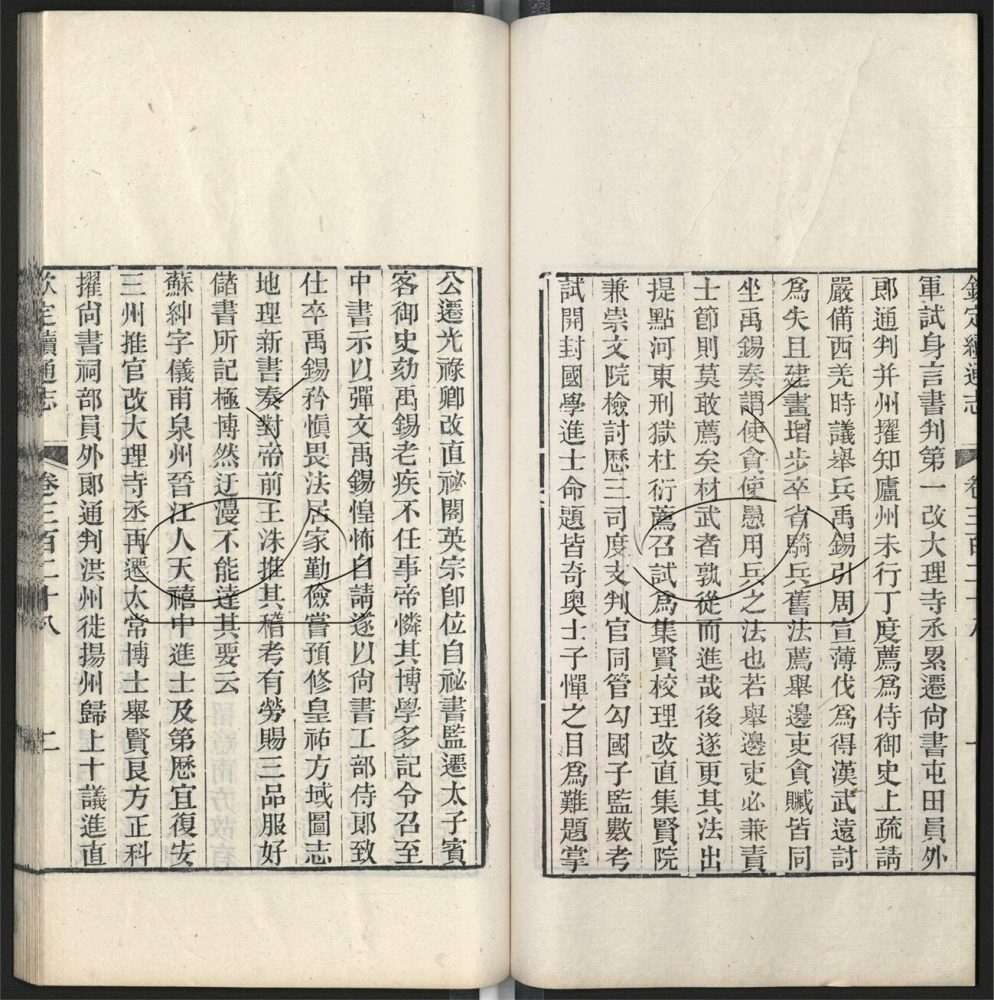 欽定續通志 卷三百二十八
軍試身言書判第一改大理寺丞累遷尚書屯田員外
郎通判并州擢知廬州未行丁度薦爲侍御史上疏請
嚴備西羌時議舉兵禹錫引周宣薄伐爲得漢武遠討
爲失且建畫增步卒省騎兵舊法薦舉邊吏貪贓皆同
坐禹錫奏謂使貪使愚用兵之法也若舉邊吏必兼責
士節則莫敢薦矣材武者孰從而進哉後遂更其法出
提點河東刑獄杜衍薦召試爲集賢校理改直集賢院
兼崇文院檢討歷三司度支判官同管勾國子監數考
試開封國學進士命題皆奇奧士子憚之目爲難題掌
公遷光祿卿改直祕閣英宗卽位自祕書監遷太子賓
客御史劾禹錫老疾不任事帝憐其博學多記令召至
中書示以彈文禹錫惶怖自請遂以尚書工部侍郎致
仕卒禹錫矜愼畏法居家勤儉嘗預修皇祐方域圖志
地理新書奏對帝前王洙推其稽考有勞賜三品服好
儲書所記極博然迂漫不能達其要云
蘇紳字儀甫泉州晉江人天禧中進士及第歷宜復安
三州推官改大理寺丞再遷太常博士舉賢良方正科
擢尚書祠部員外郎通判洪州徙揚州歸上十議進直
欽定續通志 卷三百二十八 二